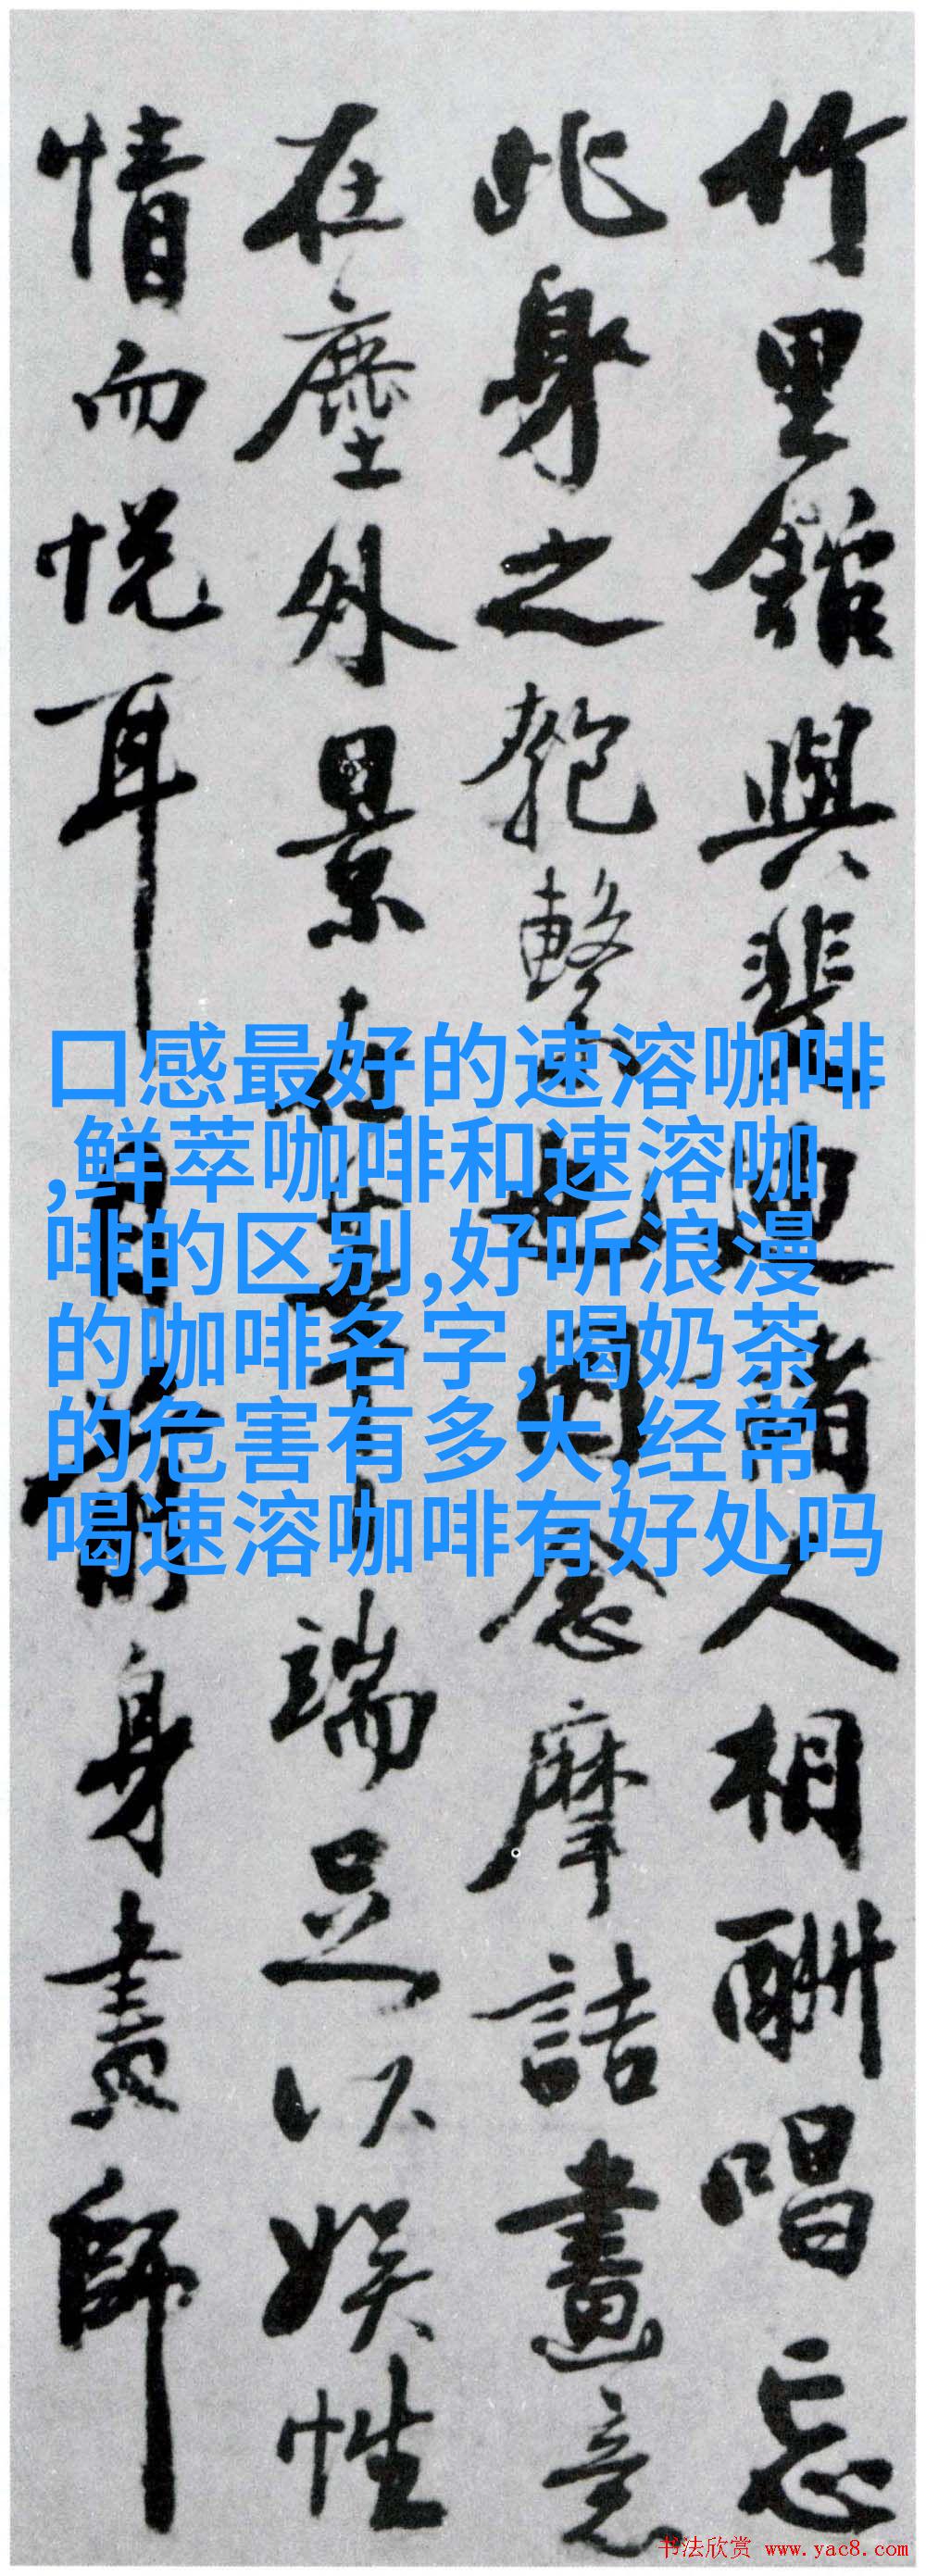 竹里館與裴迪諸人相酬唱忘
此身之匏繫也因念摩詰畫意
在塵外景在筆端足以娛性
情而悅耳目前身畫師
口感最好的速溶咖啡
,鲜萃咖啡和速溶咖
啡的区别,好听浪漫
的咖啡名字,喝奶茶
的危害有多大,经常
喝速溶咖啡有好处吗
书法欣赏 www.yac8.com